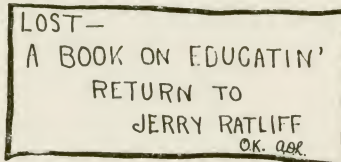 LOST—
A BOOK ON EDUCATIN'
RETURN TO
JERRY RATLIFF
O.K.